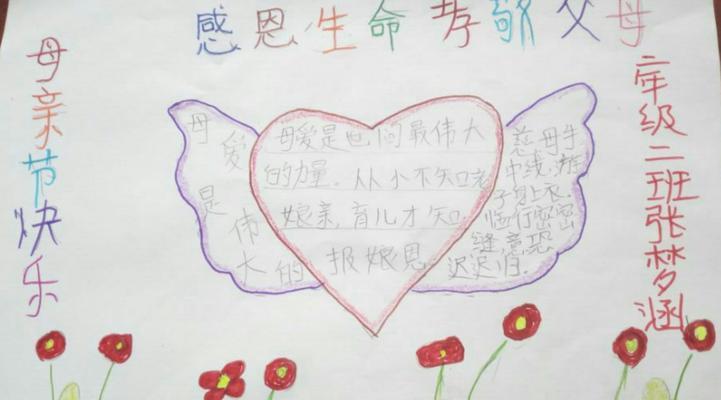 感恩生命孝敬父母
母亲节快乐
母爱
是伟
大的
母爱是世间最伟大
的力量.从小不知老
娘亲,育儿才知
报娘恩.
慈母手
中线,游
子身上衣
临行密密
缝,意恐
迟迟归.
二年级二班张梦涵